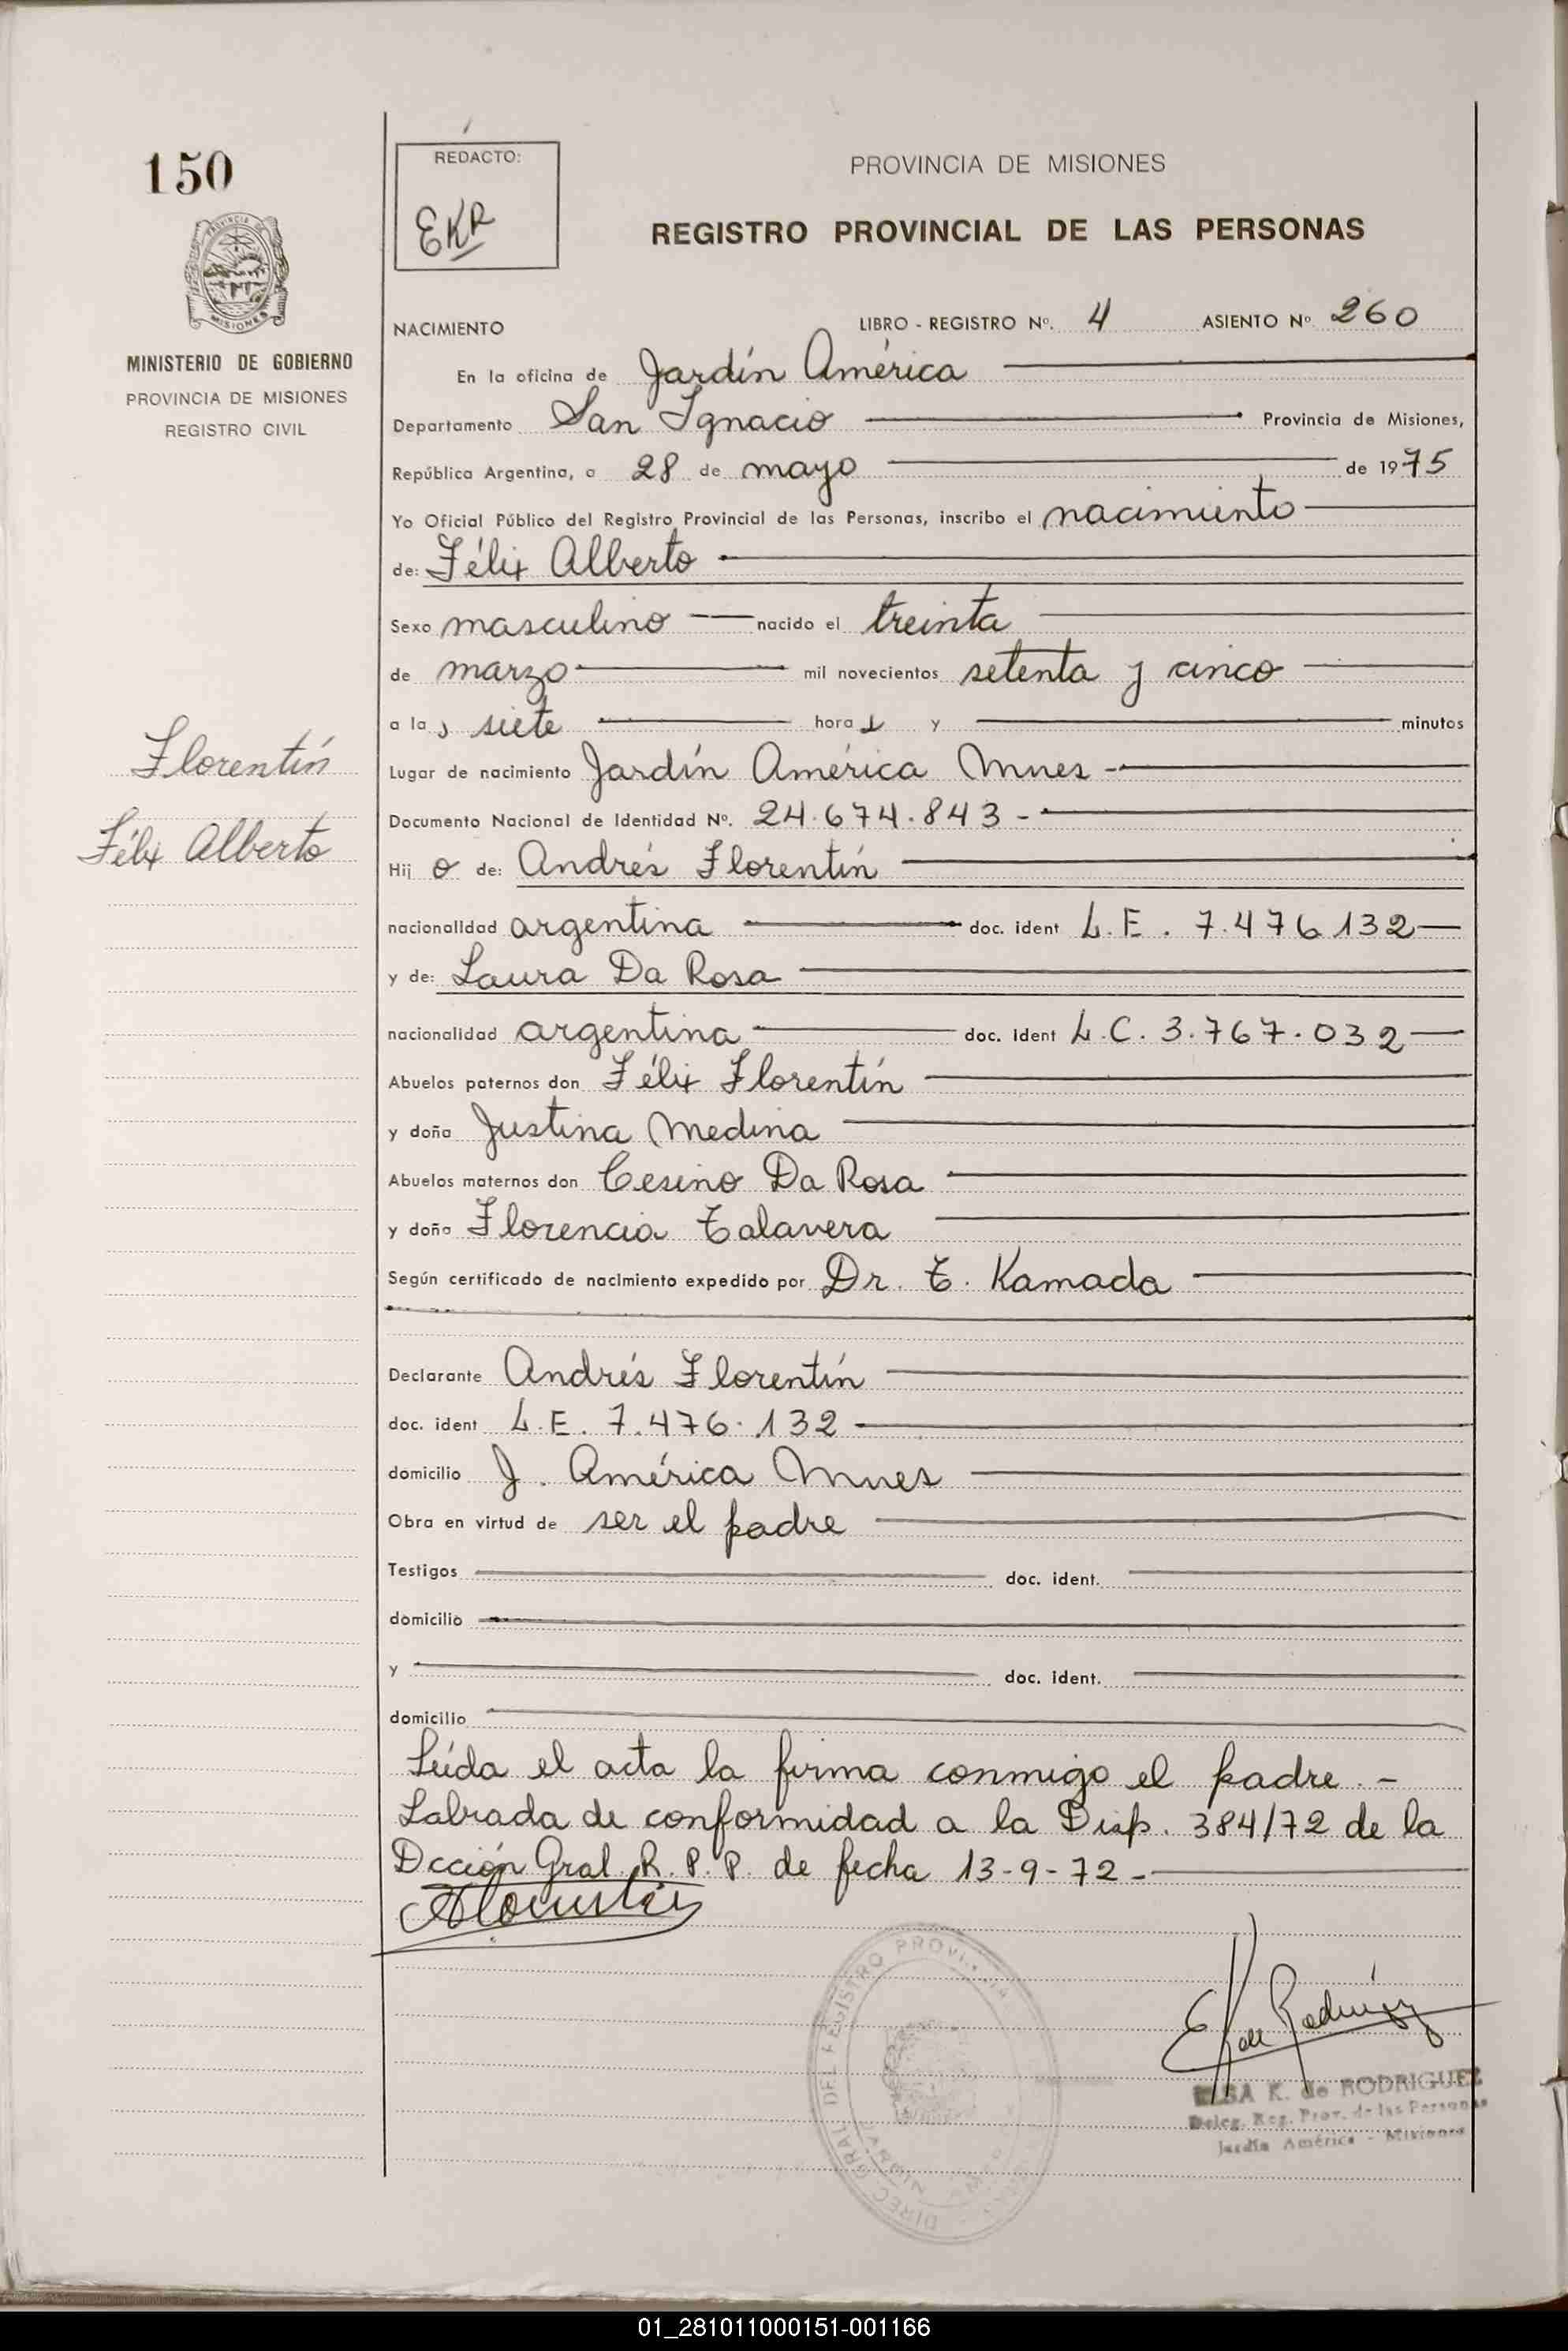 150
MINISTERIO DE GOBIERNO
PROVINCIA DE MISIONES
REGISTRO CIVIL
Florentín
Félix Alberto
REDACTO:
EKR
PROVINCIA DE MISIONES
REGISTRO PROVINCIAL DE LAS PERSONAS
NACIMIENTO LIBRO - REGISTRO Nº. 4 ASIENTO Nº 260
En la oficina de Jardín América
Departamento San Ignacio Provincia de Misiones,
República Argentina, a 28 de mayo de 1975
Yo Oficial Público del Registro Provincial de las Personas, inscribo el nacimiento
de: Félix Alberto
Sexo masculino nacido el treinta
de marzo mil novecientos setenta y cinco
a las siete horas y minutos
Lugar de nacimiento Jardín América Mnes -
Documento Nacional de Identidad Nº. 24.674.843 -
Hijo de: Andrés Florentín
nacionalidad argentina doc. ident L.E. 7.476.132
y de: Laura Da Rosa
nacionalidad argentina doc. ident L.C. 3.767.032
Abuelos paternos don Félix Florentín
y doña Justina Medina
Abuelos maternos don Cesino Da Rosa
y doña Florencia Talavera
Según certificado de nacimiento expedido por Dr. T. Kamada
Declarante Andrés Florentín
doc. ident L.E. 7.476.132
domicilio J. América Mnes
Obra en virtud de ser el padre
Testigos doc. ident.
domicilio
y doc. ident.
domicilio
Leída el acta la firma conmigo el padre. -
Labrada de conformidad a la Disp. 384/72 de la
Dcción Gral R.P.P. de fecha 13-9-72 -
E K de Rodríguez
ELSA K. de RODRIGUEZ
Deleg. Reg. Prov. de las Personas
Jardín América - Misiones
01_281011000151-001166